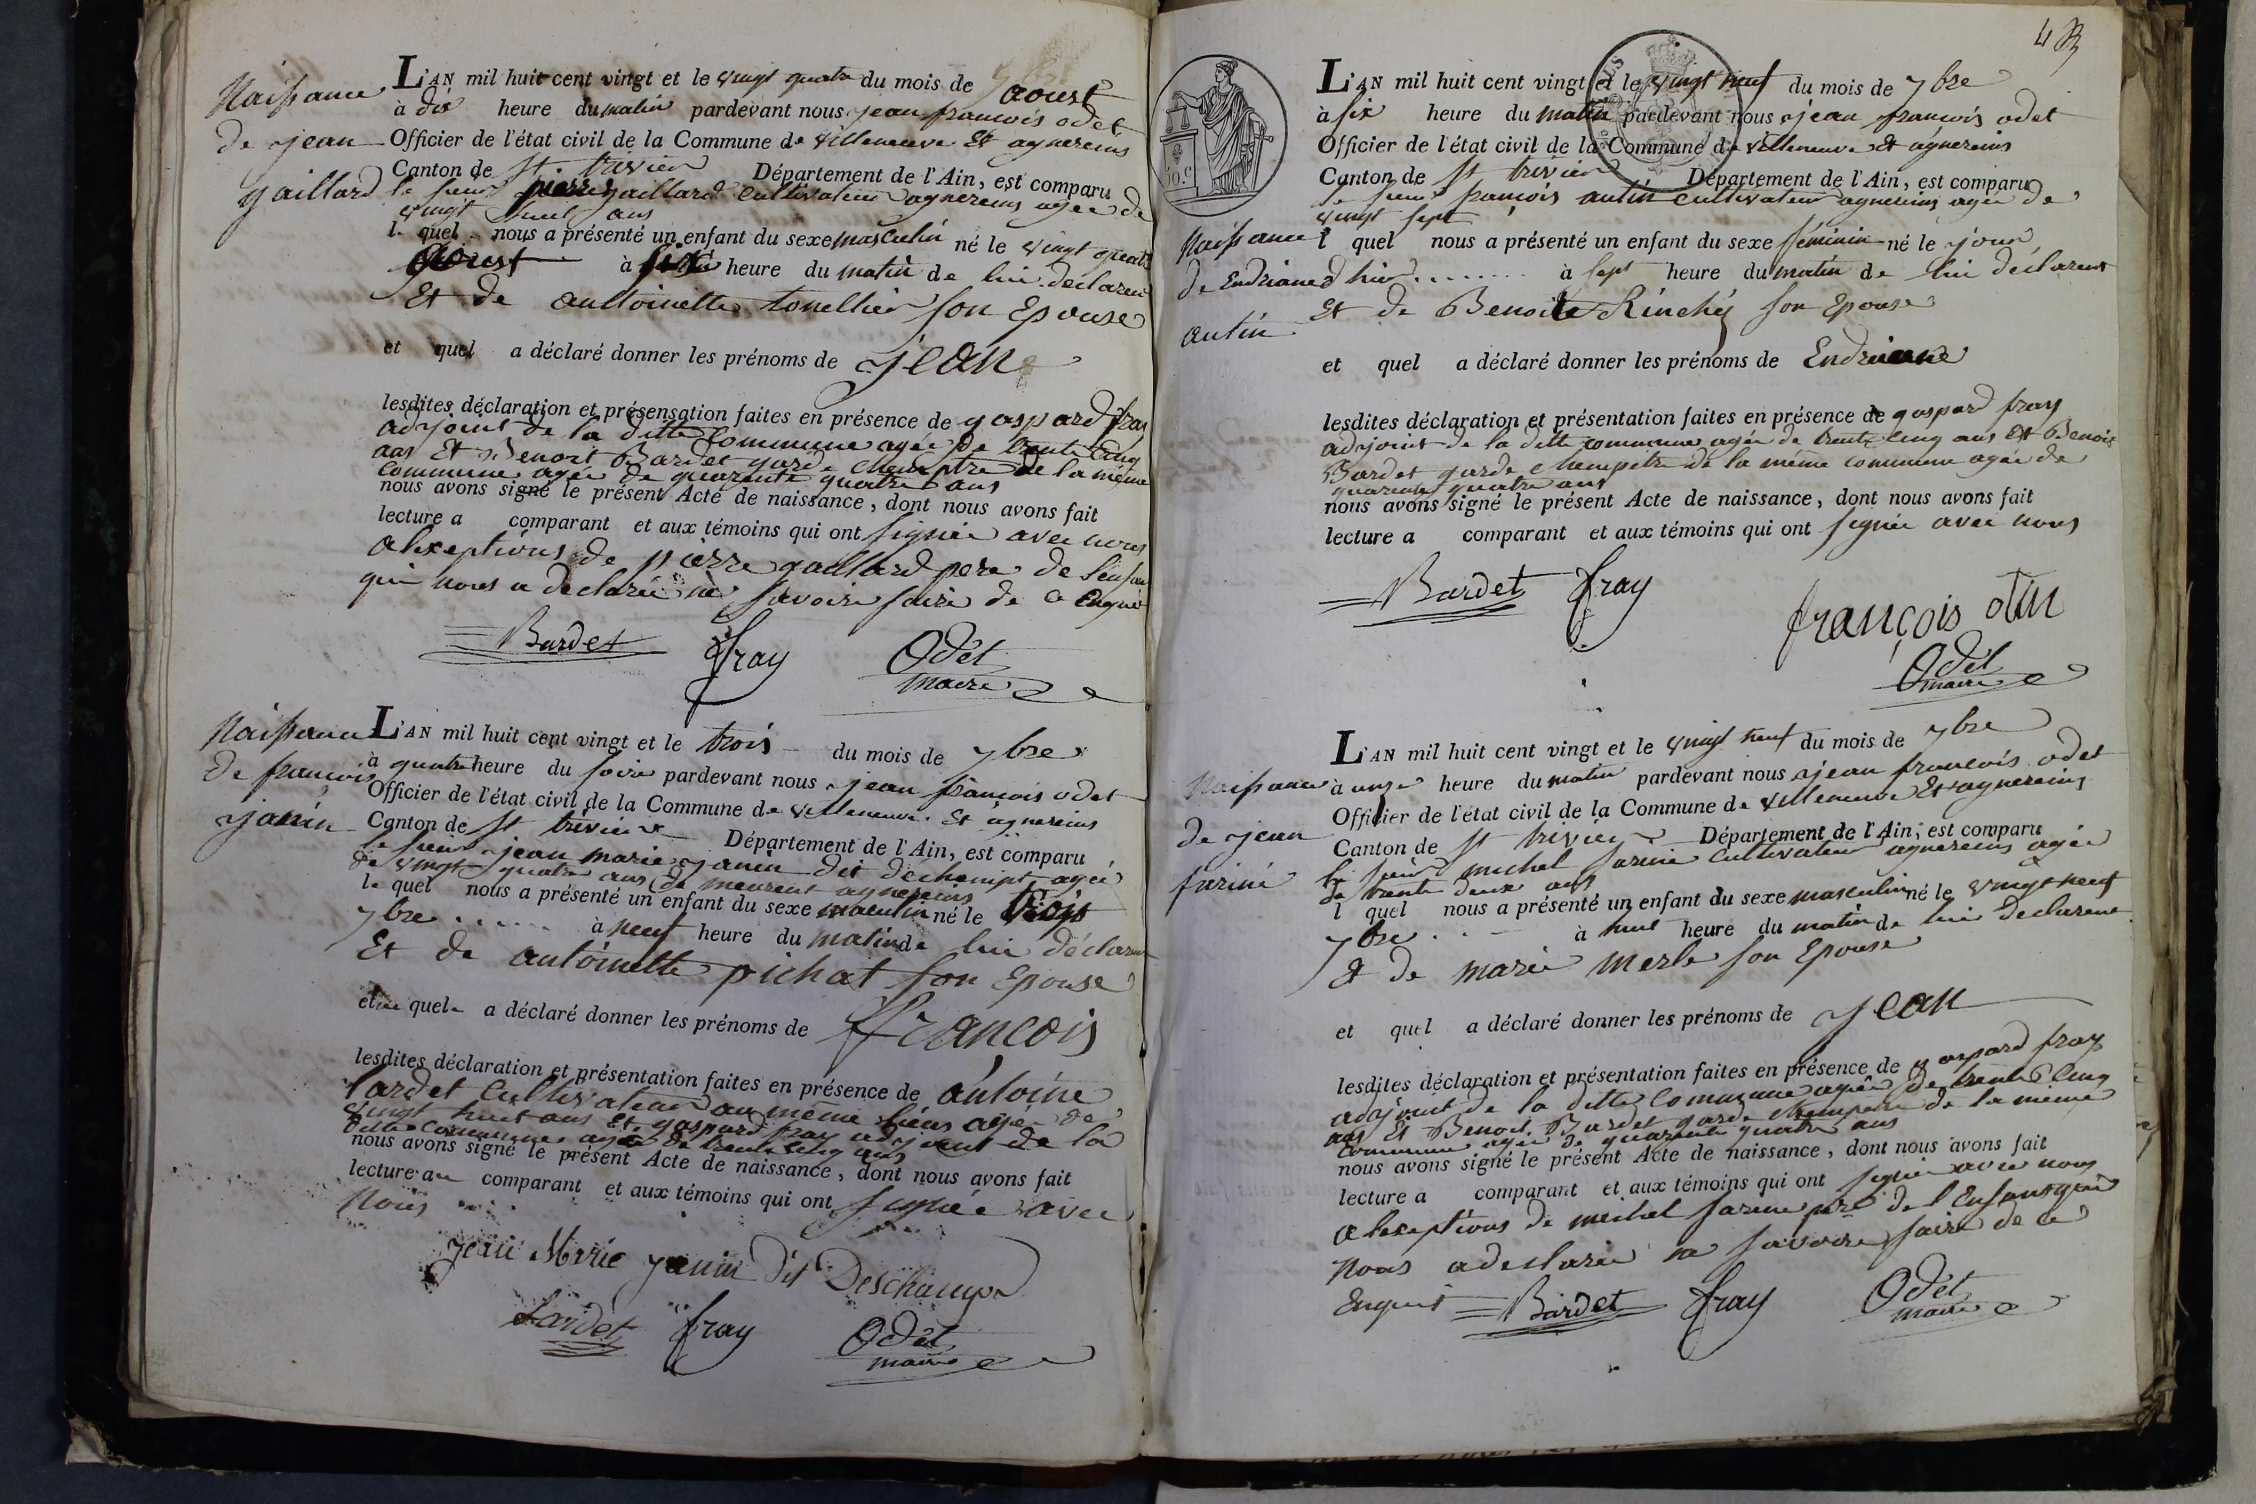 Naissance
de jean
gaillard
L'AN mil huit cent vingt et le vingt quatre du mois de aoust
à dix heure du matin pardevant nous jean francois odet
Officier de l'état civil de la Commune de villeneuve Et agnereins
Canton de St trivier Département de l'Ain, est comparu
le sieur pierre gaillard cultivateur agnereins agée de
vingt huit ans
le quel nous a présenté un enfant du sexe masculin né le vingt quatre
aoust à six heure du matin de lui declarent
Et de antoinette tonellier son Epouse
et quel a déclaré donner les prénoms de jean
lesdites déclaration et présensation faites en présence de gaspard fray
adjoint de la ditte Commune agée de trente cinq
ans Et Benoit Bardet garde chempetre de la même
commune agée de quarente quatre ans
nous avons signé le présent Acte de naissance, dont nous avons fait
lecture a comparant et aux témoins qui ont signée avec nous
alexeptions de pierre gaillard pere de l'enfant
qui nous a declarée ne savoire faire de ce Enquis
Bardet fray Odet
maire
Naissance
de françois
janin
L'AN mil huit cent vingt et le trois du mois de 7bre
à quatre heure du soire pardevant nous jean françois odet
Officier de l'état civil de la Commune de villeneuve Et agnereins
Canton de St trivier Département de l'Ain, est comparu
le sieur jean marie janin dit dechempt agée
de vingt quatre ans de meurent agnereins
le quel nous a présenté un enfant du sexe masculin né le trois
7bre à neuf heure du matin de lui déclarent
Et de antoinette pichat son Epouse
et le quel a déclaré donner les prénoms de françois
lesdites déclaration et présentation faites en présence de antoine
lardet cultivateur au même lieux agée de
vingt huit ans Et gaspard fray adjoint de la
ditte commune agée de trente cinq ans
nous avons signé le présent Acte de naissance, dont nous avons fait
lecture au comparant et aux témoins qui ont signée avec
nous
jean Marie janin Dit Deschamps
Lardet fray Odet
maire
4
L'AN mil huit cent vingt et le vingt neuf du mois de 7bre
à six heure du matin pardevant nous jean françois odet
Officier de l'état civil de la Commune de villeneuve Et agnereins
Canton de St trivier Département de l'Ain, est comparu
le sieur françois autin cultivateur agnereins agée de
vingt sept
Naissance
de Endrianne
autin
l quel nous a présenté un enfant du sexe féminin né le jour
d hier à sept heure du matin de lui déclarent
Et de Benoite Rinchy son Epouse
et quel a déclaré donner les prénoms de Endrianne
lesdites déclaration et présentation faites en présence de gaspard fray
adjoint de la ditte commune agée de trente cinq ans Et Benoit
Bardet garde chempetre de la même commune agée de
quarente quatre ans
nous avons signé le présent Acte de naissance, dont nous avons fait
lecture a comparant et aux témoins qui ont signée avec nous
Bardet fray
françois otin
Odet
maire
Naissance
de jean
farine
L'AN mil huit cent vingt et le vingt neuf du mois de 7bre
à onze heure du matin pardevant nous jean françois odet
Officier de l'état civil de la Commune de villeneuve Et agnereins
Canton de St trivier Département de l'Ain, est comparu
le sieur michel farine cultivateur agnereins agée
de trente deux ans
l quel nous a présenté un enfant du sexe masculin né le vingt neuf
7bre à huit heure du matin de lui declarent
Et de marie merle son Epouse
et quel a déclaré donner les prénoms de jean
lesdites déclaration et présentation faites en présence de gaspard fray
adjoint de la ditte commune agée de trente cinq
ans Et Benoit Bardet garde chempetre de la même
commune agée de quarente quatre ans
nous avons signé le présent Acte de naissance, dont nous avons fait
lecture a comparant et aux témoins qui ont signée avec nous
alexeptions de michel farine pere de l'Enfant qui
nous a declarée ne savoire faire de ce
Enquis Bardet fray Odet
maire